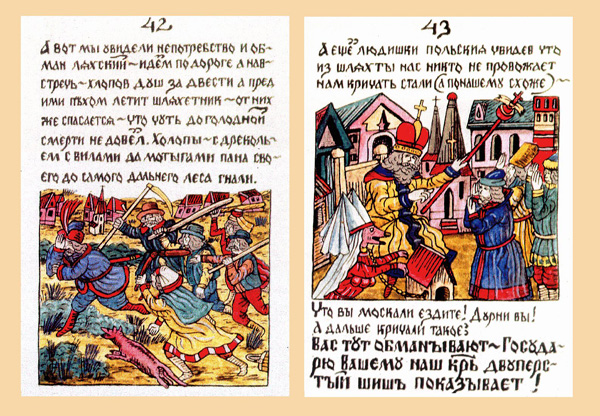 42
А вот мы увидели непотребство и об-
ман ляхский ~ идем по дороге а нав-
стречь ~ хлопов душ за двести а пред
ими пѣхом летит шляхетник ~ от них
же спасается ~ что чуть до голодной
смерти не довел. Холопы ~ с дреколь-
ем с вилами да мотыгами пана сво-
его до самого дальнего леса гнали.
43
А ещё людишки польския увидев что
из шляхты нас никто не провожает
нам кричать стали (а понашему схоже) ~
Что вы москали ездите! Дурни вы!
А дальше кричали такое:
Вас тут обманывают ~ Госуда-
рю вашему наш крль двуперс-
тый шишъ показывает!